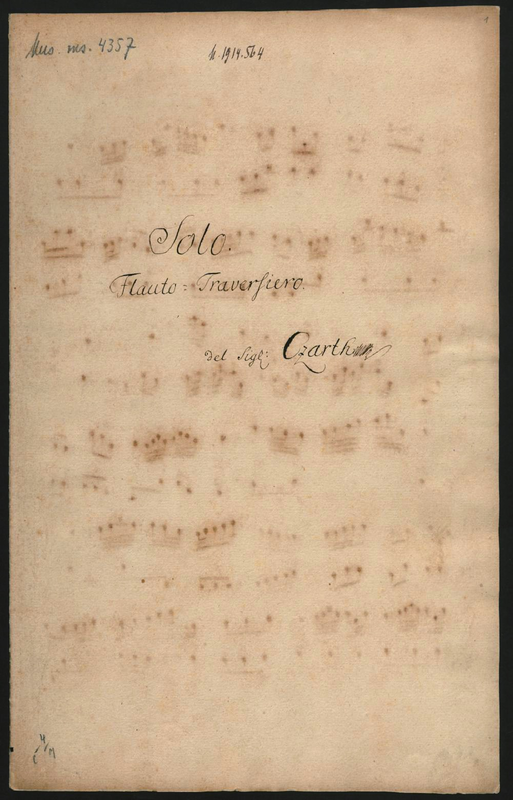 Mus. ms. 4357
M. 1919.564
1
Solo.
Flauto = Traversiero.
del Sigl: Czarth